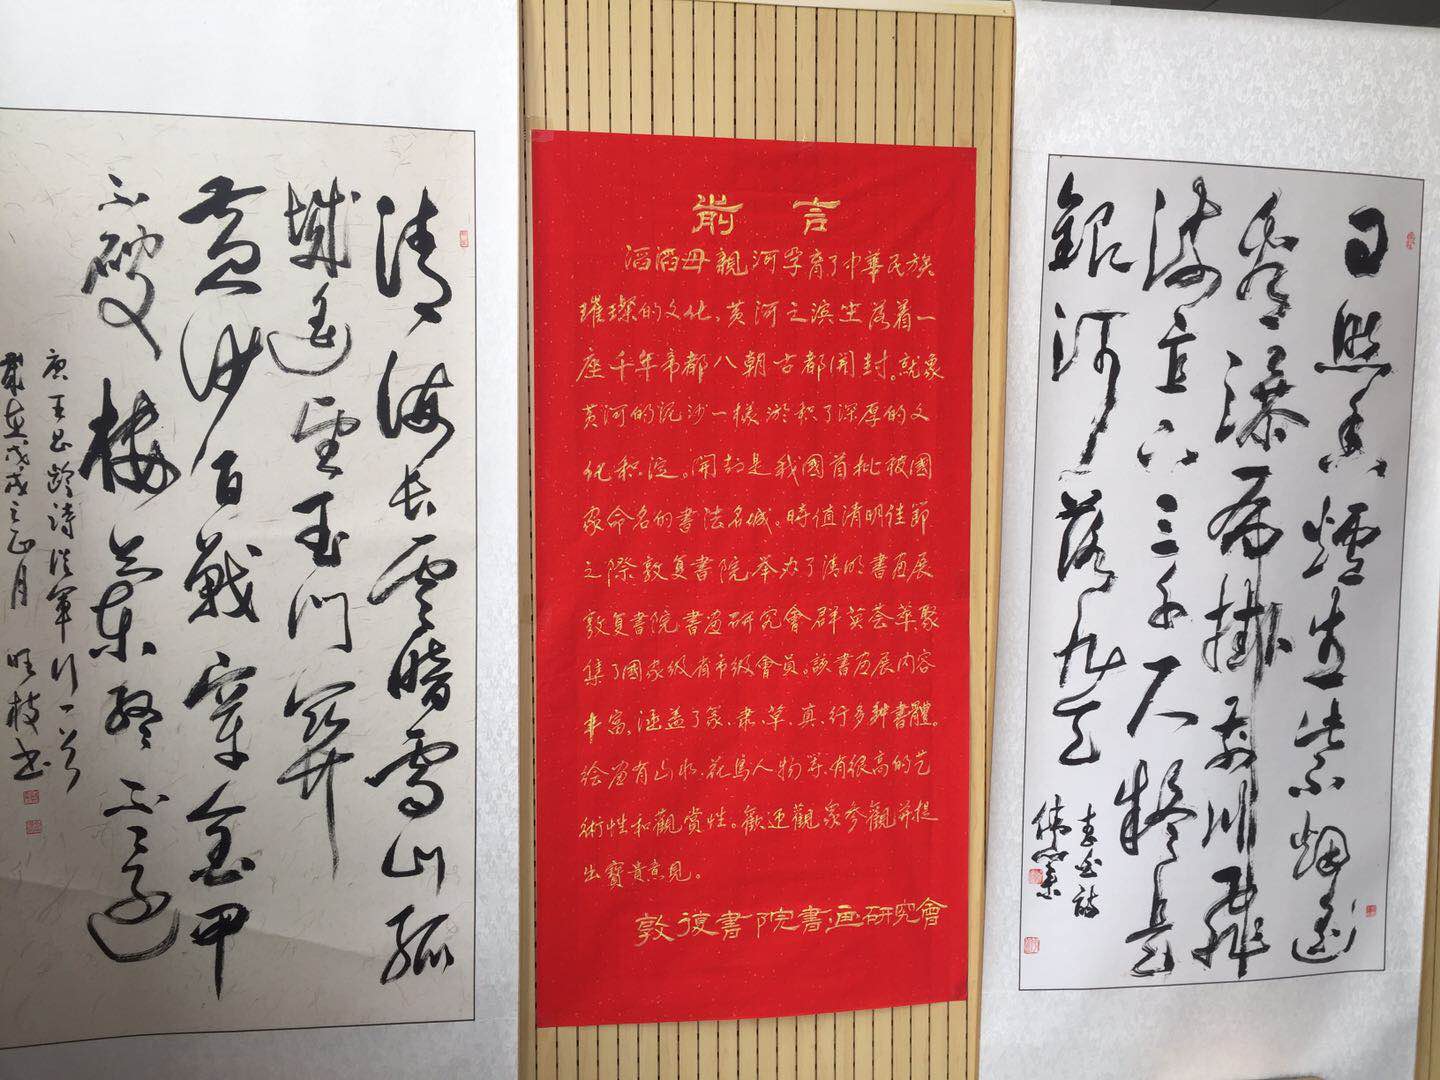 清海长云暗雪山孤
城遥望玉门関
黄沙百戰穿金甲
不破楼兰终不还
唐王昌龄诗从军行一首
歲在戊戌之正月 旺枝书
前言
滔滔母親河孕育了中華民族
璀璨的文化,黄河之滨坐落着一
座千年帝都八朝古都開封。就象
黄河的泥沙一樣淤积了深厚的文
化积淀。開封是我國首批被國
家命名的書法名城。時值清明佳節
之際敦复書院,举办了清明書画展
敦复書院書画研究會群英荟萃聚
集了國家级省市级會員。該書画展内容
丰富,涵盖了篆.隶.草.真.行多种書體。
绘画有山水.花鳥人物等.有很高的艺
術性和觀赏性。歡迎觀眾参觀并提
出寶貴意見。
敦復書院書画研究會
日照香爐生紫烟遥
看瀑布掛前川飛
流直下三千尺疑是
銀河落九天
李白詩